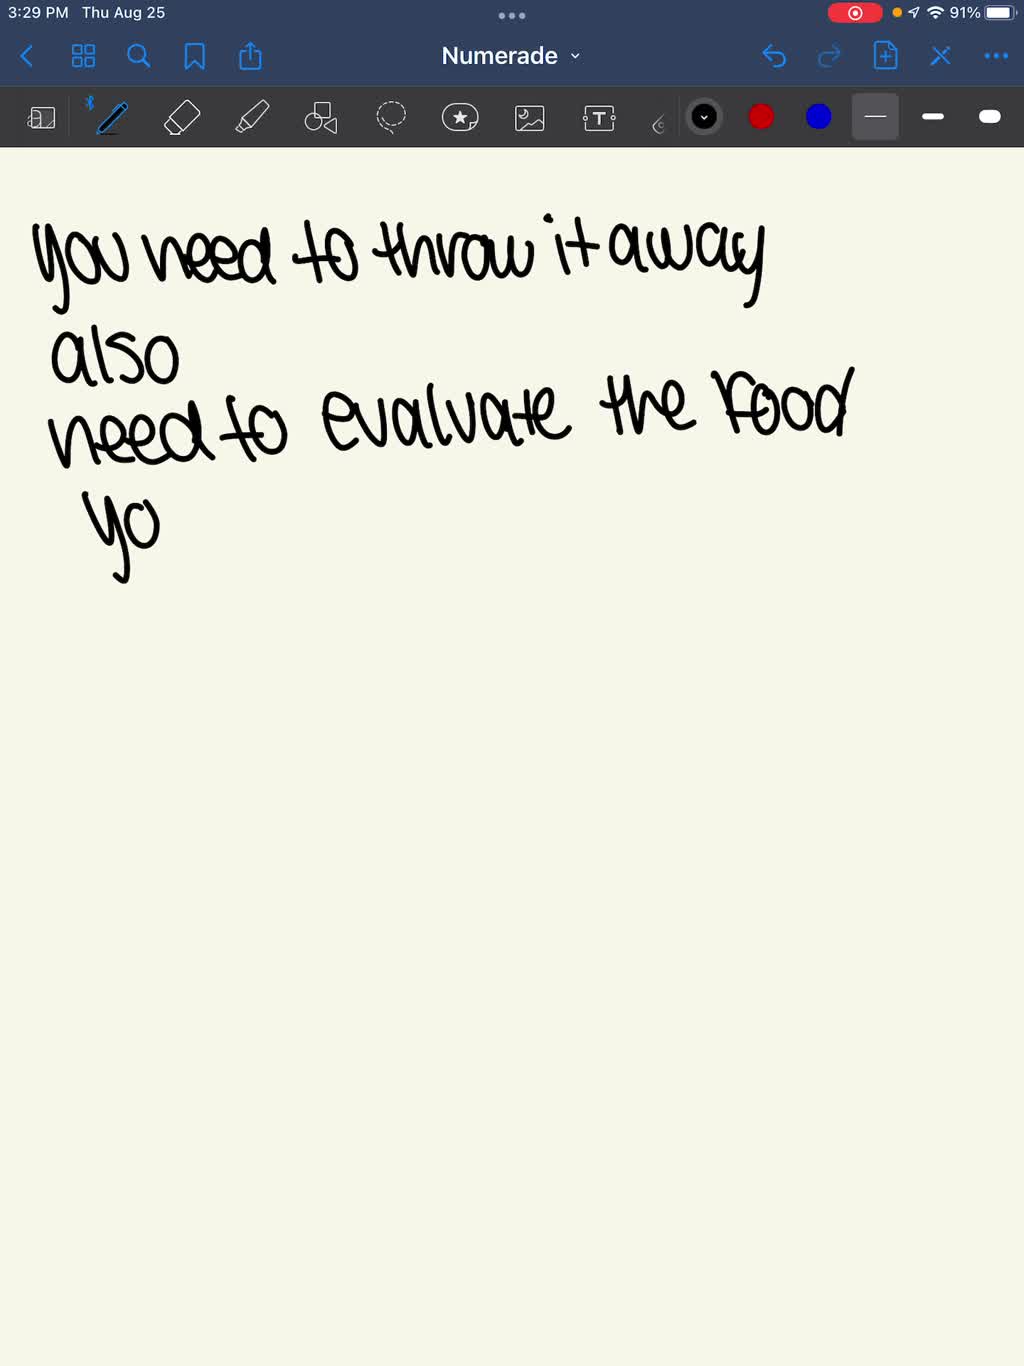 3:29 PM Thu Aug 25 91%
Numerade
T
you need to throw it away
also
need to evaluate the food
yo